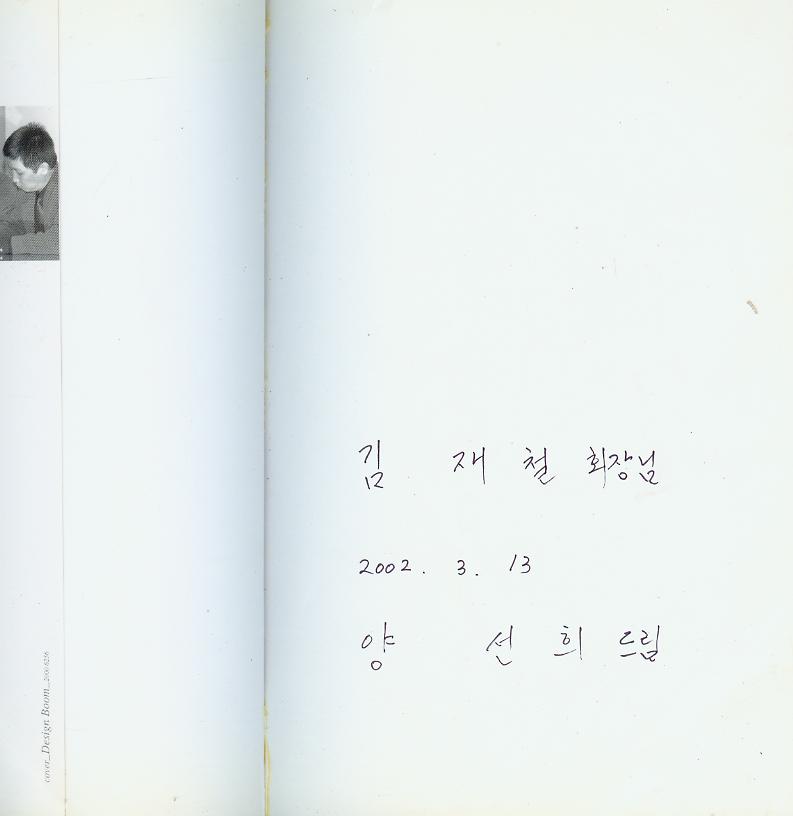 김 재 철 회장님
2002. 3. 13
양 선 희 드림
cover_Design Boom_